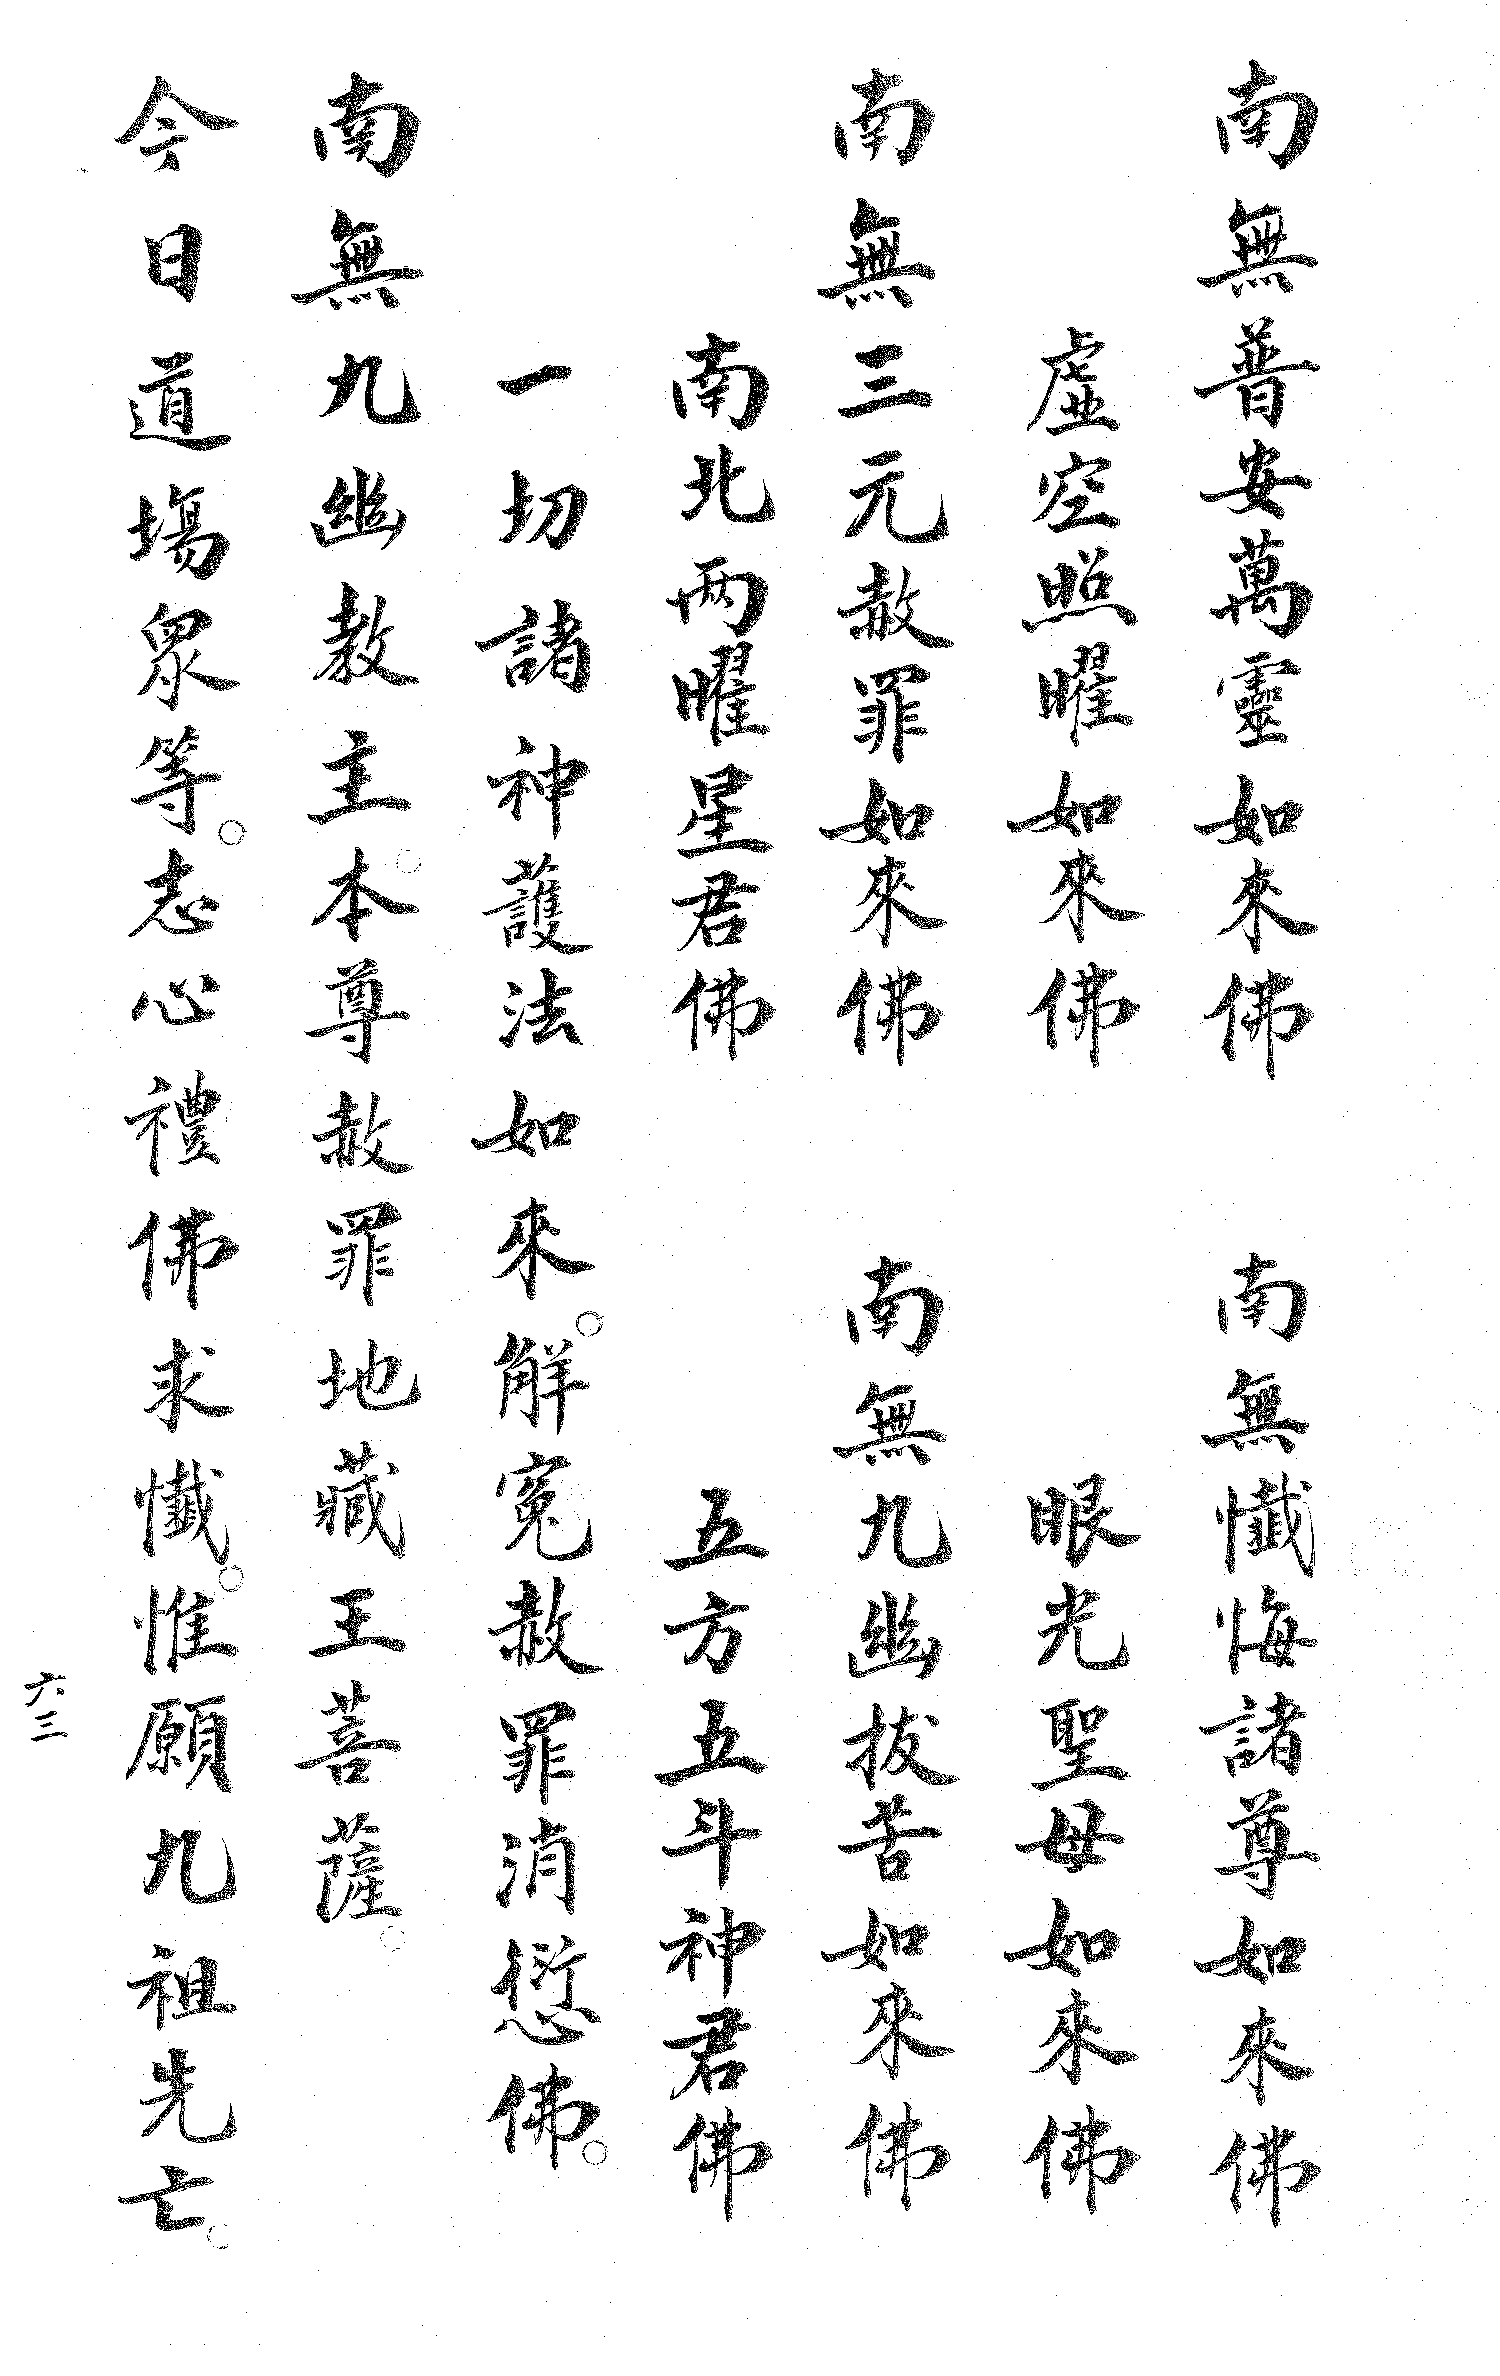 南無普安萬靈如來佛　南無懺悔諸尊如來佛
虛空照曜如來佛　眼光聖母如來佛
南無三元赦罪如來佛　南無九幽拔苦如來佛
南北两曜星君佛　五方五斗神君佛
一切諸神護法如來。解寃赦罪消愆佛。
南無九幽教主。本尊赦罪地藏王菩薩。
今日道場眾等。志心禮佛求懺。惟願九祖先亡。
六三